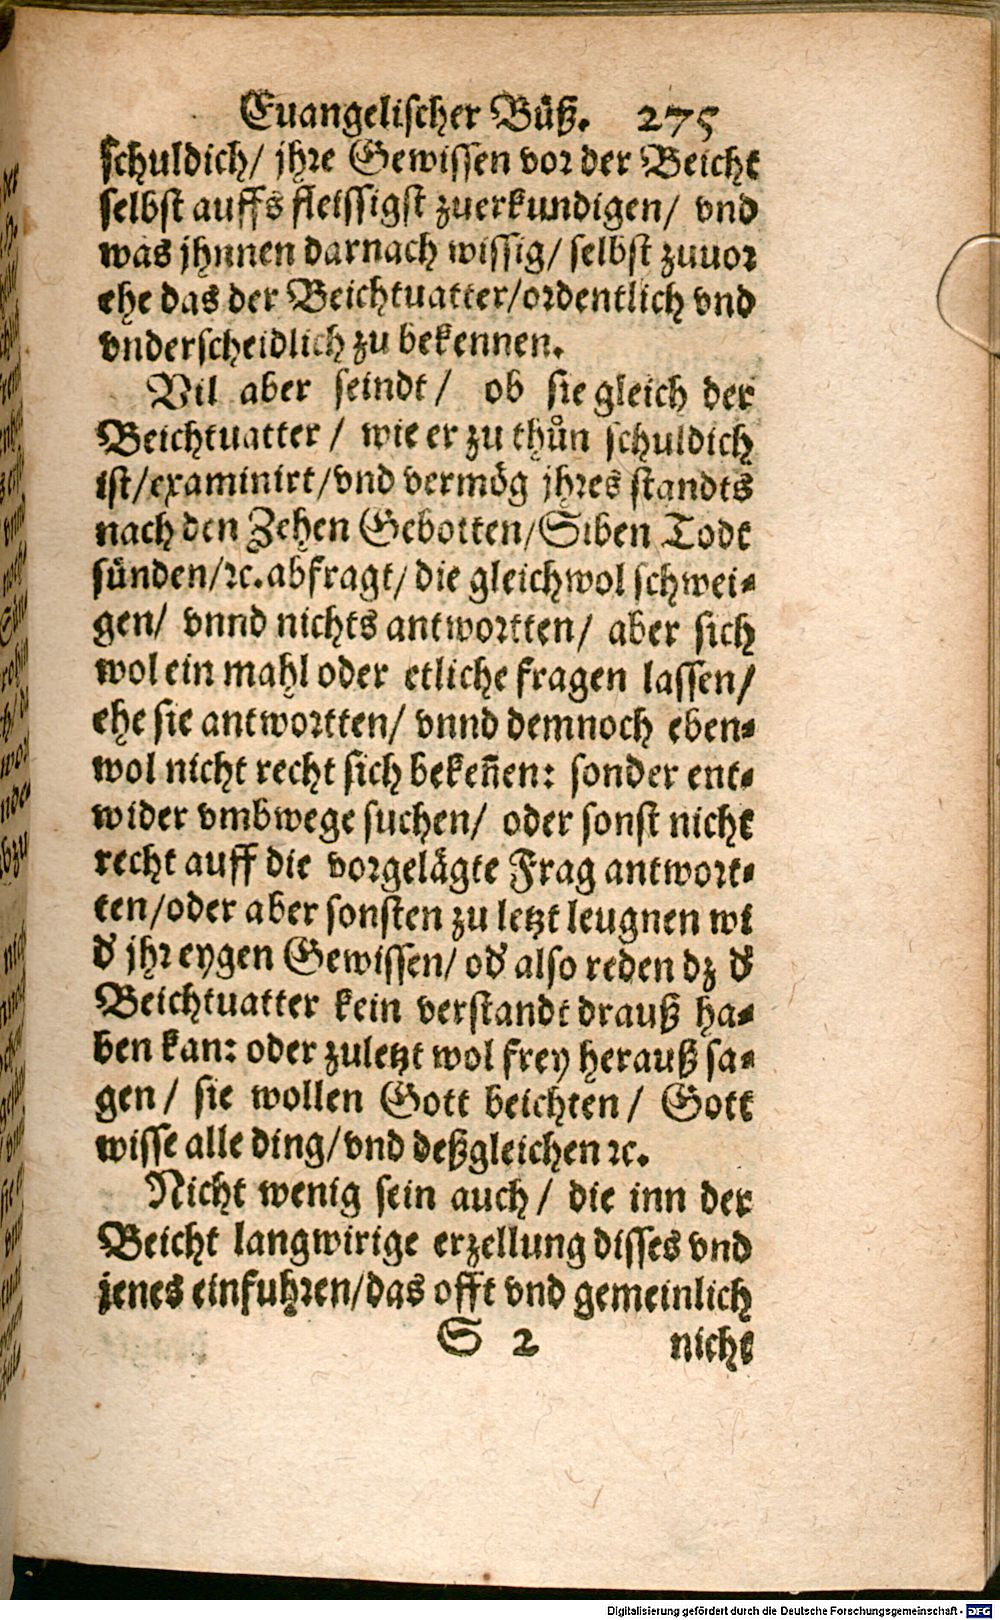 Euangelischer Büß. 275
schuldich/ jhre Gewissen vor der Beicht
selbst auffs fleissigst zuerkundigen/ vnd
was jhnnen darnach wissig/ selbst zuuor
ehe das der Beichtuatter/ordentlich vnd
vnderscheidlich zu bekennen.
Vil aber seindt/ ob sie gleich der
Beichtuatter/ wie er zu thůn schuldich
ist/examinirt/vnd vermög jhres standts
nach den Zehen Gebotten/Siben Todt
sünden/ꝛc.abfragt/ die gleichwol schwei⸗
gen/ vnnd nichts antwortten/ aber sich
wol ein mahl oder etliche fragen lassen/
ehe sie antwortten/ vnnd demnoch eben⸗
wol nicht recht sich bekeñen: sonder ent⸗
wider vmbwege suchen/ oder sonst nicht
recht auff die vorgelägte Frag antwort⸗
ten/oder aber sonsten zu letzt leugnen wi
dʼ jhr eygen Gewissen/ odʼ also reden dz dʼ
Beichtuatter kein verstandt drauß ha⸗
ben kan: oder zuletzt wol frey herauß sa⸗
gen/ sie wollen Gott beichten/ Gott
wisse alle ding/vnd deßgleichen ꝛc.
Nicht wenig sein auch/ die inn der
Beicht langwirige erzellung disses vnd
jenes einfuhren/das offt vnd gemeinlich
S 2 nicht
Digitalisierung gefördert durch die Deutsche Forschungsgemeinschaft - DFG